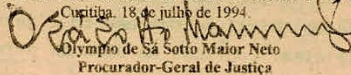 Curitiba, 18 de julho de 1994.
Olympio de Sá Sotto Maior Neto
Procurador-Geral de Justiça